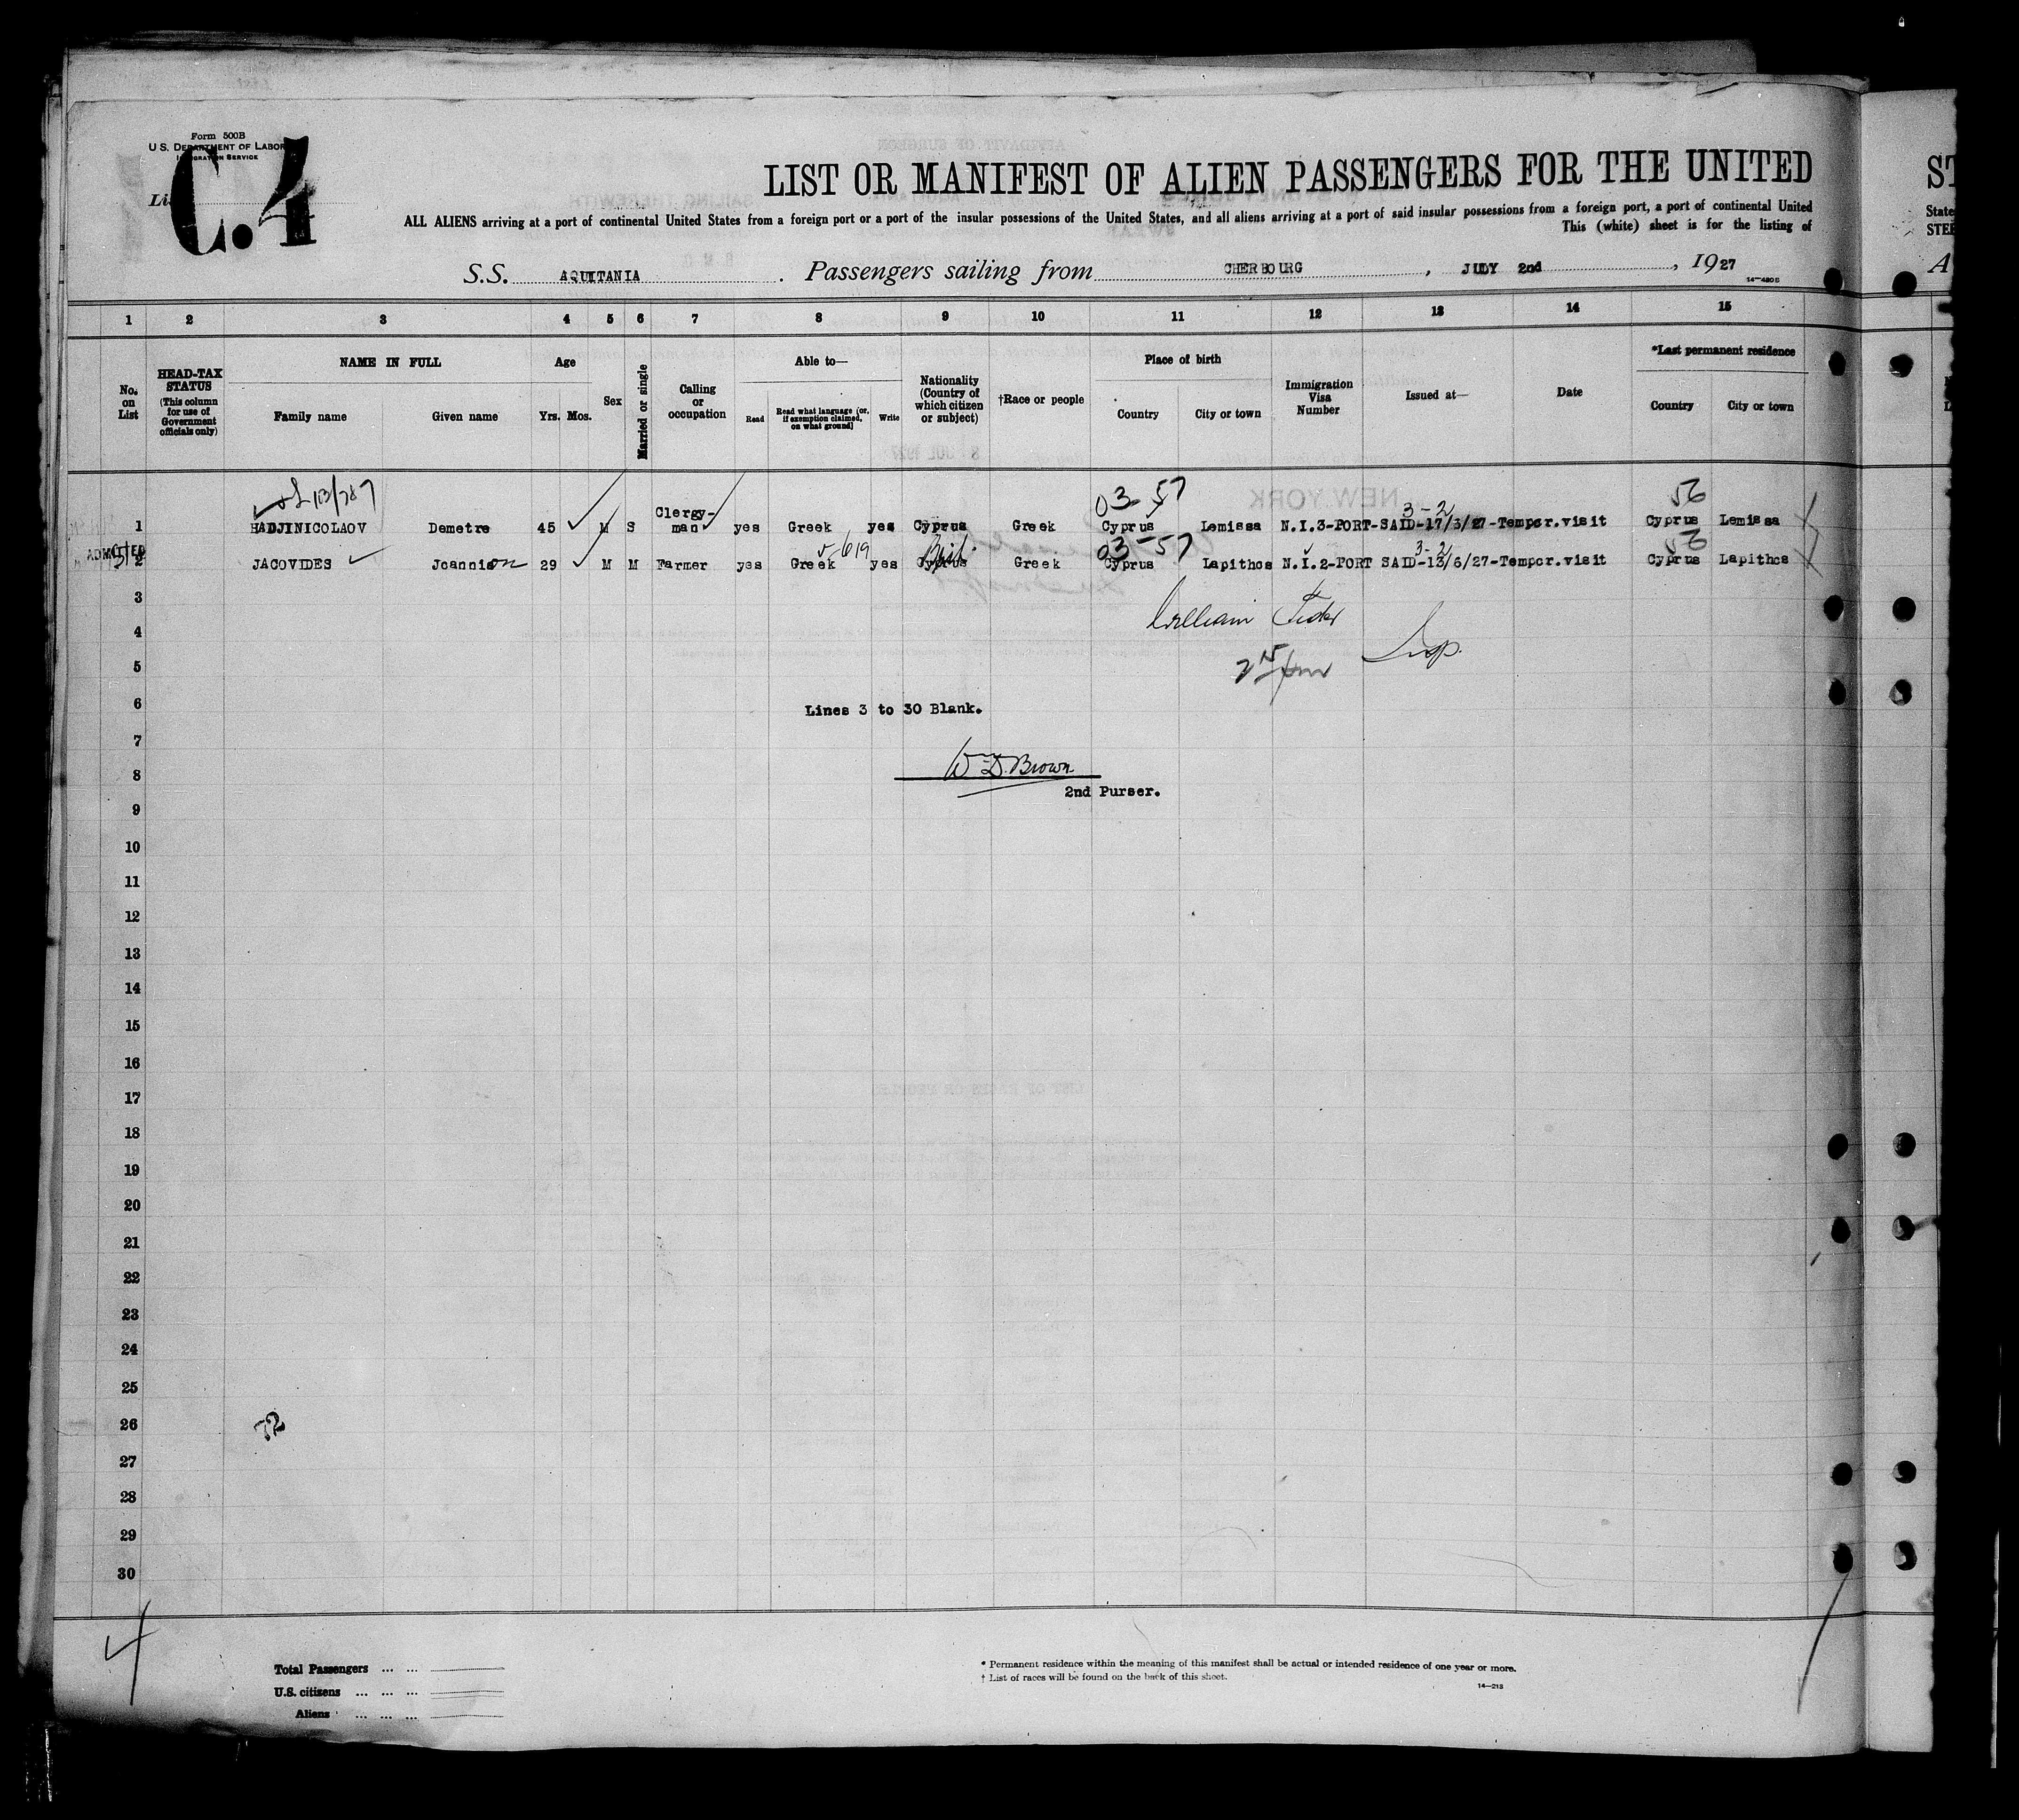 Form 500B
U.S. DEPARTMENT OF LABOR
IMMIGRATION SERVICE
C.4
LIST OR MANIFEST OF ALIEN PASSENGERS FOR THE UNITED
ALL ALIENS arriving at a port of continental United States from a foreign port or a port of the insular possessions of the United States, and all aliens arriving at a port of said insular possessions from a foreign port, a port of continental United
This (white) sheet is for the listing of
S.S. AQUITANIA . Passengers sailing from CHERBOURG , JULY 2nd , 1927
14—4805
1 2 3 4 5 6 7 8 9 10 11 12 13 14 15
No. on List
HEAD-TAX STATUS (This column for use of Government officials only)
NAME IN FULL
Family name Given name
Age
Yrs. Mos.
Sex
Married or single
Calling or occupation
Able to—
Read Read what language (or, if exemption claimed, on what ground) Write
Nationality (Country of which citizen or subject)
†Race or people
Place of birth
Country City or town
Immigration Visa Number
Issued at—
Date
*Last permanent residence
Country City or town
03-57 3-2 56
1 HADJINICOLAOV Demetre 45 M S Clergy-man yes Greek yes Cyprus Greek Cyprus Lemissa N.I.3-PORT-SAID-17/3/27-Tempor.visit Cyprus Lemissa
ADMITTED
619 Brit. 03-57 3-2 56
2 JACOVIDES Joannison 29 M M Farmer yes Greek yes Cyprus Greek Cyprus Lapithos N.I.2-PORT SAID-13/6/27-Tempor.visit Cyprus Lapithos
3
William
4
Insp.
5
6 Lines 3 to 30 Blank.
7
Wm D. Brown
8
2nd Purser.
9
10
11
12
13
14
15
16
17
18
19
20
21
22
23
24
25
26 72
27
28
29
30
4
Total Passengers ... ...
U.S. citizens ... ... ...
Aliens ... ... ...
* Permanent residence within the meaning of this manifest shall be actual or intended residence of one year or more.
† List of races will be found on the back of this sheet.
14—213